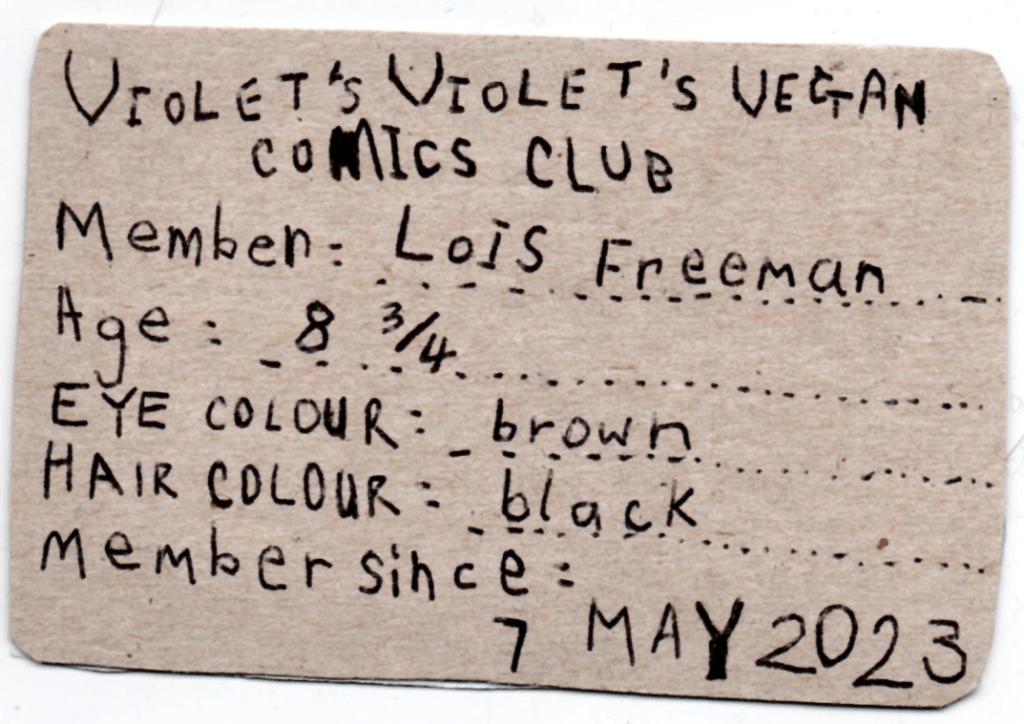 VIOLET'S VIOLET'S VEGAN
COMICS CLUB
Member: Lois Freeman
Age: 8 3/4
EYE COLOUR: brown
HAIR COLOUR: black
Member since:
7 MAY 2023